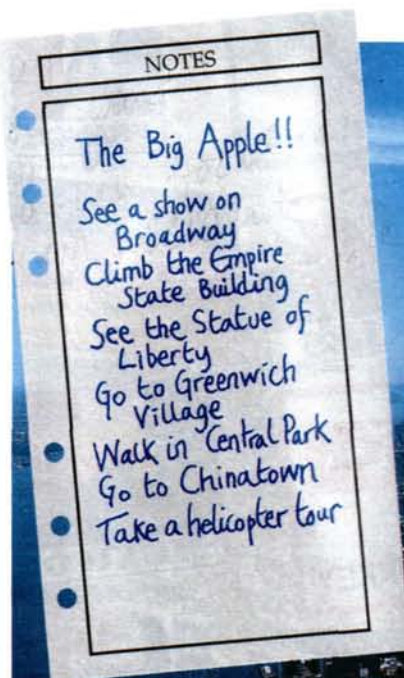 NOTES
The Big Apple!!
See a show on
Broadway
Climb the Empire
State Building
See the Statue of
Liberty
Go to Greenwich
Village
Walk in Central Park
Go to Chinatown
Take a helicopter tour